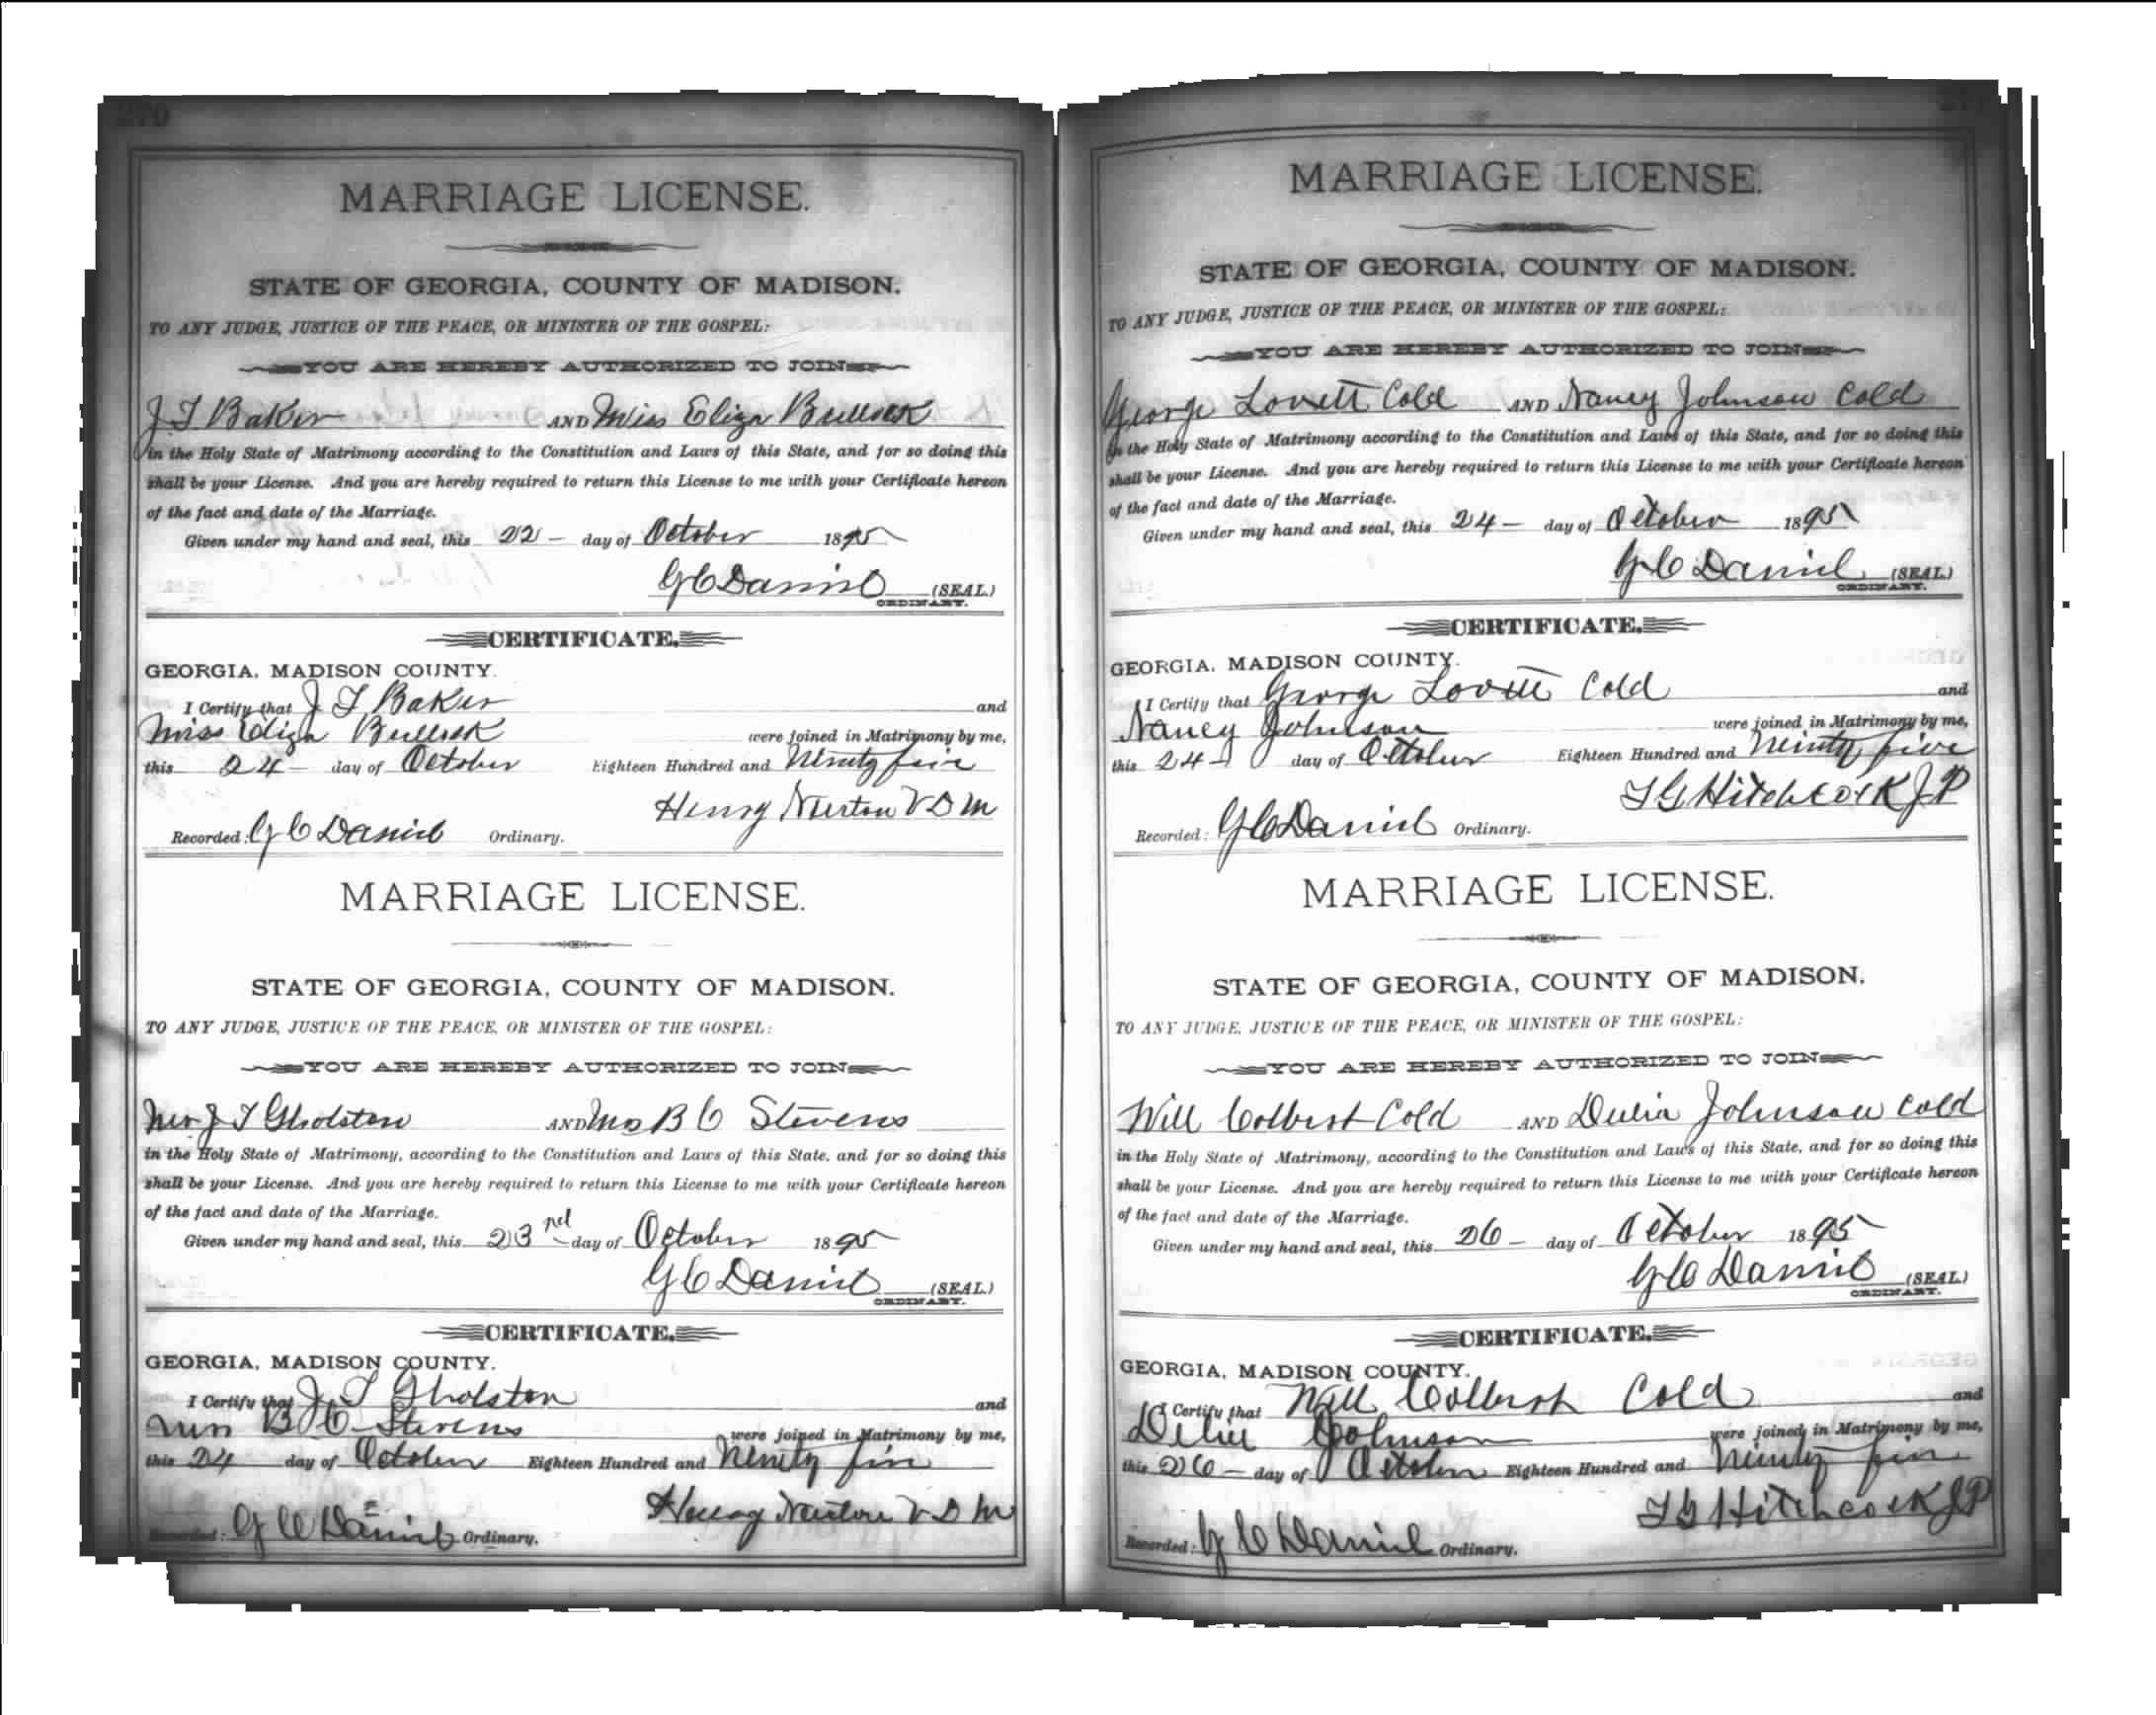 270
MARRIAGE LICENSE.
STATE OF GEORGIA, COUNTY OF MADISON.
TO ANY JUDGE, JUSTICE OF THE PEACE, OR MINISTER OF THE GOSPEL:
YOU ARE HEREBY AUTHORIZED TO JOIN
J T Baker AND Miss Eliza Bullock
in the Holy State of Matrimony according to the Constitution and Laws of this State, and for so doing this
shall be your License. And you are hereby required to return this License to me with your Certificate hereon
of the fact and date of the Marriage.
Given under my hand and seal, this 22 - day of October 1895
G C Daniel (SEAL)
ORDINARY.
CERTIFICATE.
GEORGIA, MADISON COUNTY.
I Certify that J T Baker and
Miss Eliza Bullock were joined in Matrimony by me,
this 24 - day of October Eighteen Hundred and Ninety five
Henry Newton V D M
Recorded: G C Daniel Ordinary.
MARRIAGE LICENSE.
STATE OF GEORGIA, COUNTY OF MADISON.
TO ANY JUDGE, JUSTICE OF THE PEACE, OR MINISTER OF THE GOSPEL:
YOU ARE HEREBY AUTHORIZED TO JOIN
Mr J T Gholston AND Mrs B C Stevens
in the Holy State of Matrimony, according to the Constitution and Laws of this State, and for so doing this
shall be your License. And you are hereby required to return this License to me with your Certificate hereon
of the fact and date of the Marriage.
Given under my hand and seal, this 23rd day of October 1895
G C Daniel (SEAL)
ORDINARY.
CERTIFICATE.
GEORGIA, MADISON COUNTY.
I Certify that J T Gholston and
Mrs B C Stevens were joined in Matrimony by me,
this 24 day of October Eighteen Hundred and Ninety five
Henry Newton V D M
Recorded: G C Daniel Ordinary.
MARRIAGE LICENSE.
STATE OF GEORGIA, COUNTY OF MADISON.
TO ANY JUDGE, JUSTICE OF THE PEACE, OR MINISTER OF THE GOSPEL:
YOU ARE HEREBY AUTHORIZED TO JOIN
George Lovett Cold AND Nancy Johnson Cold
in the Holy State of Matrimony according to the Constitution and Laws of this State, and for so doing this
shall be your License. And you are hereby required to return this License to me with your Certificate hereon
of the fact and date of the Marriage.
Given under my hand and seal, this 24 - day of October 1895
G C Daniel (SEAL)
ORDINARY.
CERTIFICATE.
GEORGIA, MADISON COUNTY.
I Certify that George Lovett Cold and
Nancy Johnson were joined in Matrimony by me,
this 24 - day of October Eighteen Hundred and Ninety five
T G Hitchcock J P
Recorded: G C Daniel Ordinary.
MARRIAGE LICENSE.
STATE OF GEORGIA, COUNTY OF MADISON.
TO ANY JUDGE, JUSTICE OF THE PEACE, OR MINISTER OF THE GOSPEL:
YOU ARE HEREBY AUTHORIZED TO JOIN
Will Colbert Cold AND Delia Johnson Cold
in the Holy State of Matrimony, according to the Constitution and Laws of this State, and for so doing this
shall be your License. And you are hereby required to return this License to me with your Certificate hereon
of the fact and date of the Marriage.
Given under my hand and seal, this 26 - day of October 1895
G C Daniel (SEAL)
ORDINARY.
CERTIFICATE.
GEORGIA, MADISON COUNTY.
I Certify that Will Colbert Cold and
Johnson were joined in Matrimony by me,
this 26 - day of October Eighteen Hundred and Ninety five
T G Hitchcock J P
Recorded: G C Daniel Ordinary.